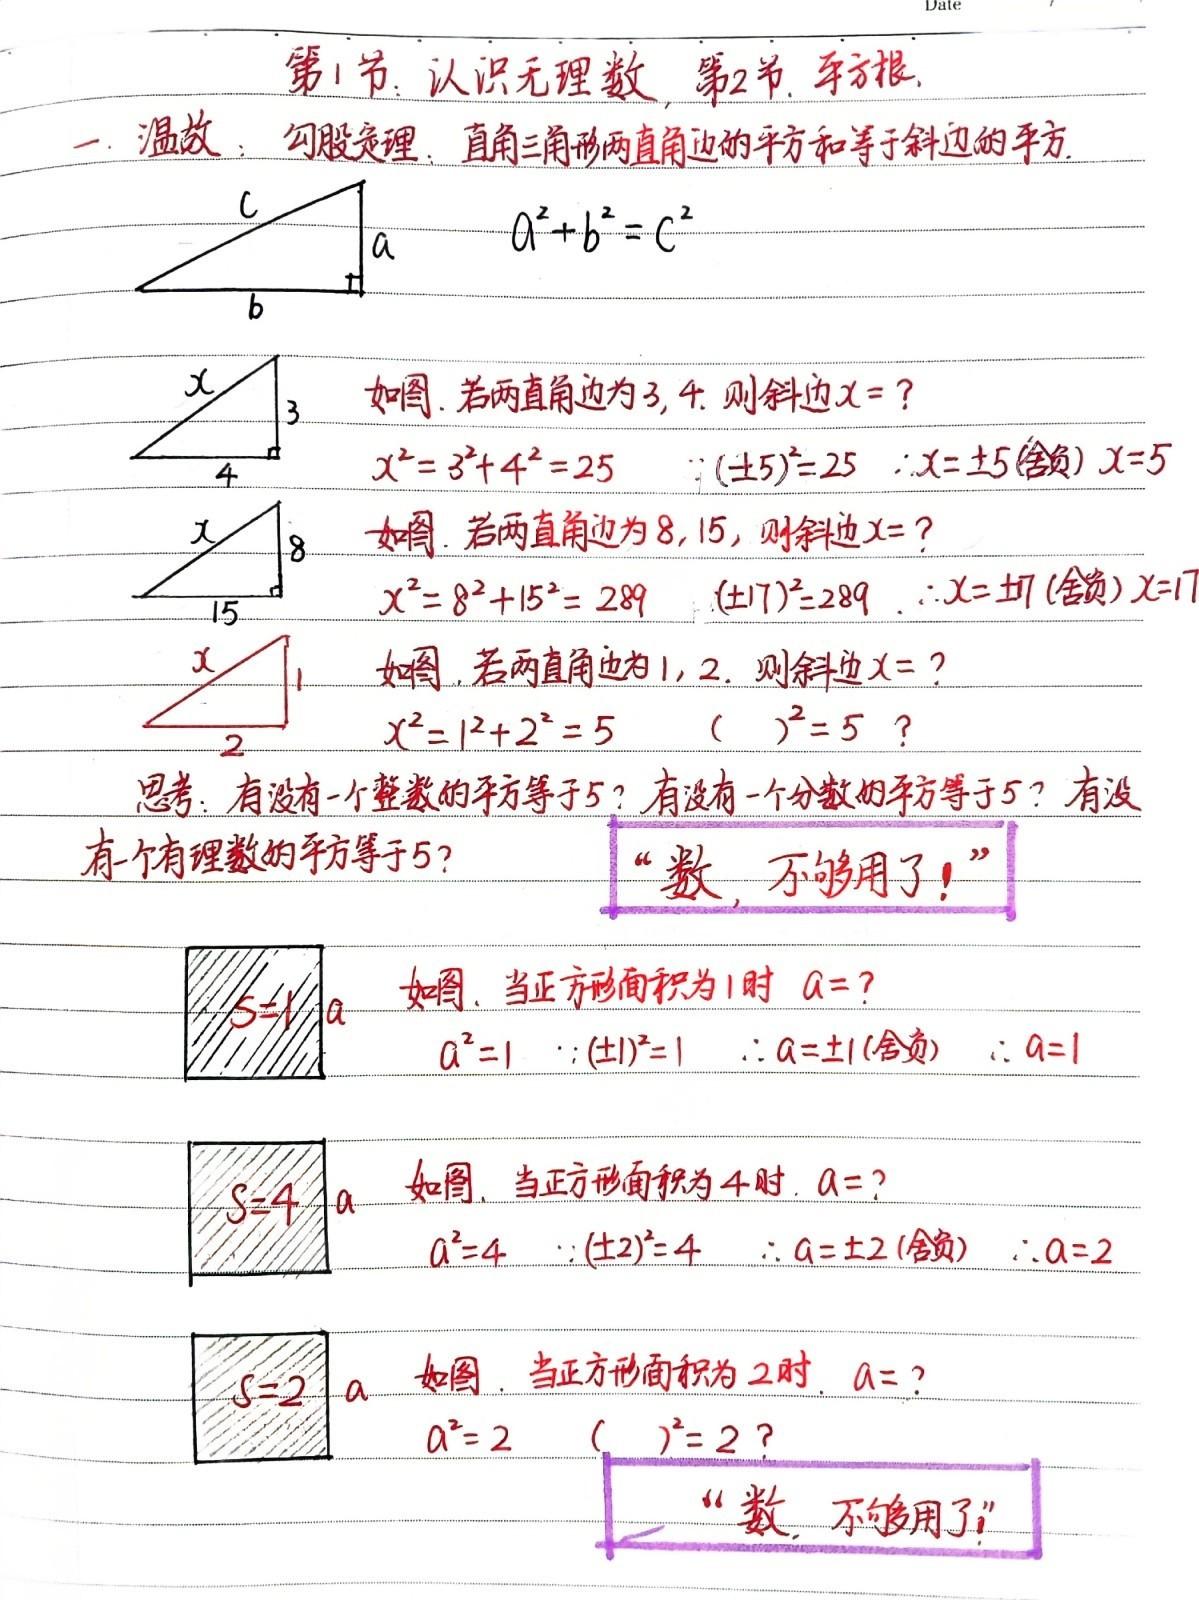 Date
第1节:认识无理数,第2节.平方根.
一.温故:勾股定理.直角三角形两直角边的平方和等于斜边的平方.
c
a
b
a²+b²=c²
x
3
4
如图.若两直角边为3,4.则斜边x=?
x²=3²+4²=25 ∵(±5)²=25 ∴x=±5(舍负) x=5
x
8
15
如图.若两直角边为8,15,则斜边x=?
x²=8²+15²=289 (±17)²=289.∴x=±17(舍负)x=17
x
1
2
如图.若两直角边为1,2.则斜边x=?
x²=1²+2²=5 ( )²=5 ?
思考:有没有一个整数的平方等于5?有没有一个分数的平方等于5?有没
有一个有理数的平方等于5?
“数,不够用了!”
S=1 a
如图.当正方形面积为1时 a=?
a²=1 ∵(±1)²=1 ∴a=±1(舍负) ∴a=1
S=4 a
如图.当正方形面积为4时.a=?
a²=4 ∵(±2)²=4 ∴a=±2(舍负) ∴a=2
S=2 a
如图.当正方形面积为2时.a=?
a²=2 ( )²=2?
“数,不够用了!”